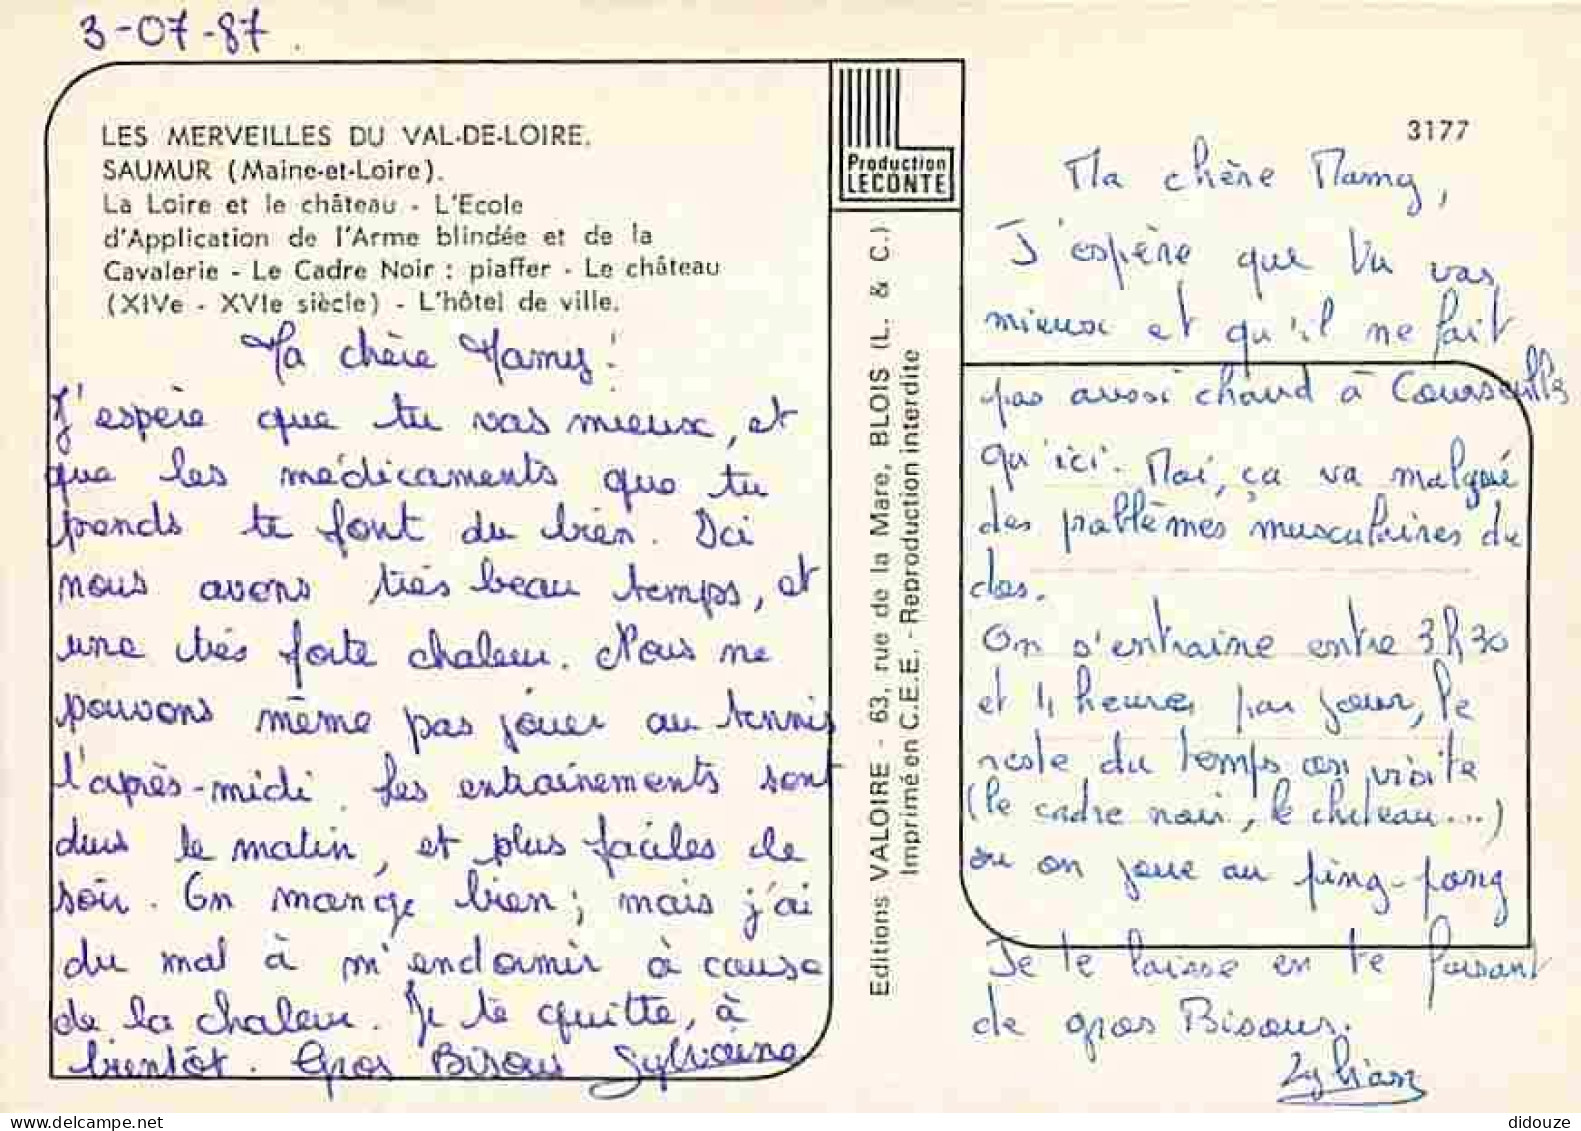 3-07-87.
LES MERVEILLES DU VAL-DE-LOIRE.
SAUMUR (Maine-et-Loire).
La Loire et le château - L'Ecole
d'Application de l'Arme blindée et de la
Cavalerie - Le Cadre Noir : piaffer - Le château
(XIVe - XVIe siècle) - L'hôtel de ville.
Ma chère Mamy!
J'espère que tu vas mieux, et
que les médicaments que tu
prends te font du bien. Ici
nous avons très beau temps, et
une très forte chaleur. Nous ne
pouvons même pas jouer au tennis
l'après-midi. Les entraînements sont
durs le matin, et plus faciles le
soir. On mange bien; mais j'ai
du mal à m'endormir à cause
de la chaleur. Je te quitte, à
bientôt. Gros Bisous Sylvaine
Production
LECONTE
Editions VALOIRE - 63, rue de la Mare, BLOIS (L. & C.)
Imprimé en C.E.E. - Reproduction interdite
3177
Ma chère Mamy,
J'espère que tu vas
mieux et qu'il ne fait
pas aussi chaud à Courseulles
qu'ici. Moi, ça va malgré
des problèmes musculaires de
dos.
On s'entraine entre 3h30
et 4 heures par jour, le
reste du temps on visite
(le cadre noir, le chateau...)
ou on joue au ping-pong
Je te laisse en te faisant
de gros Bisous.
didouze